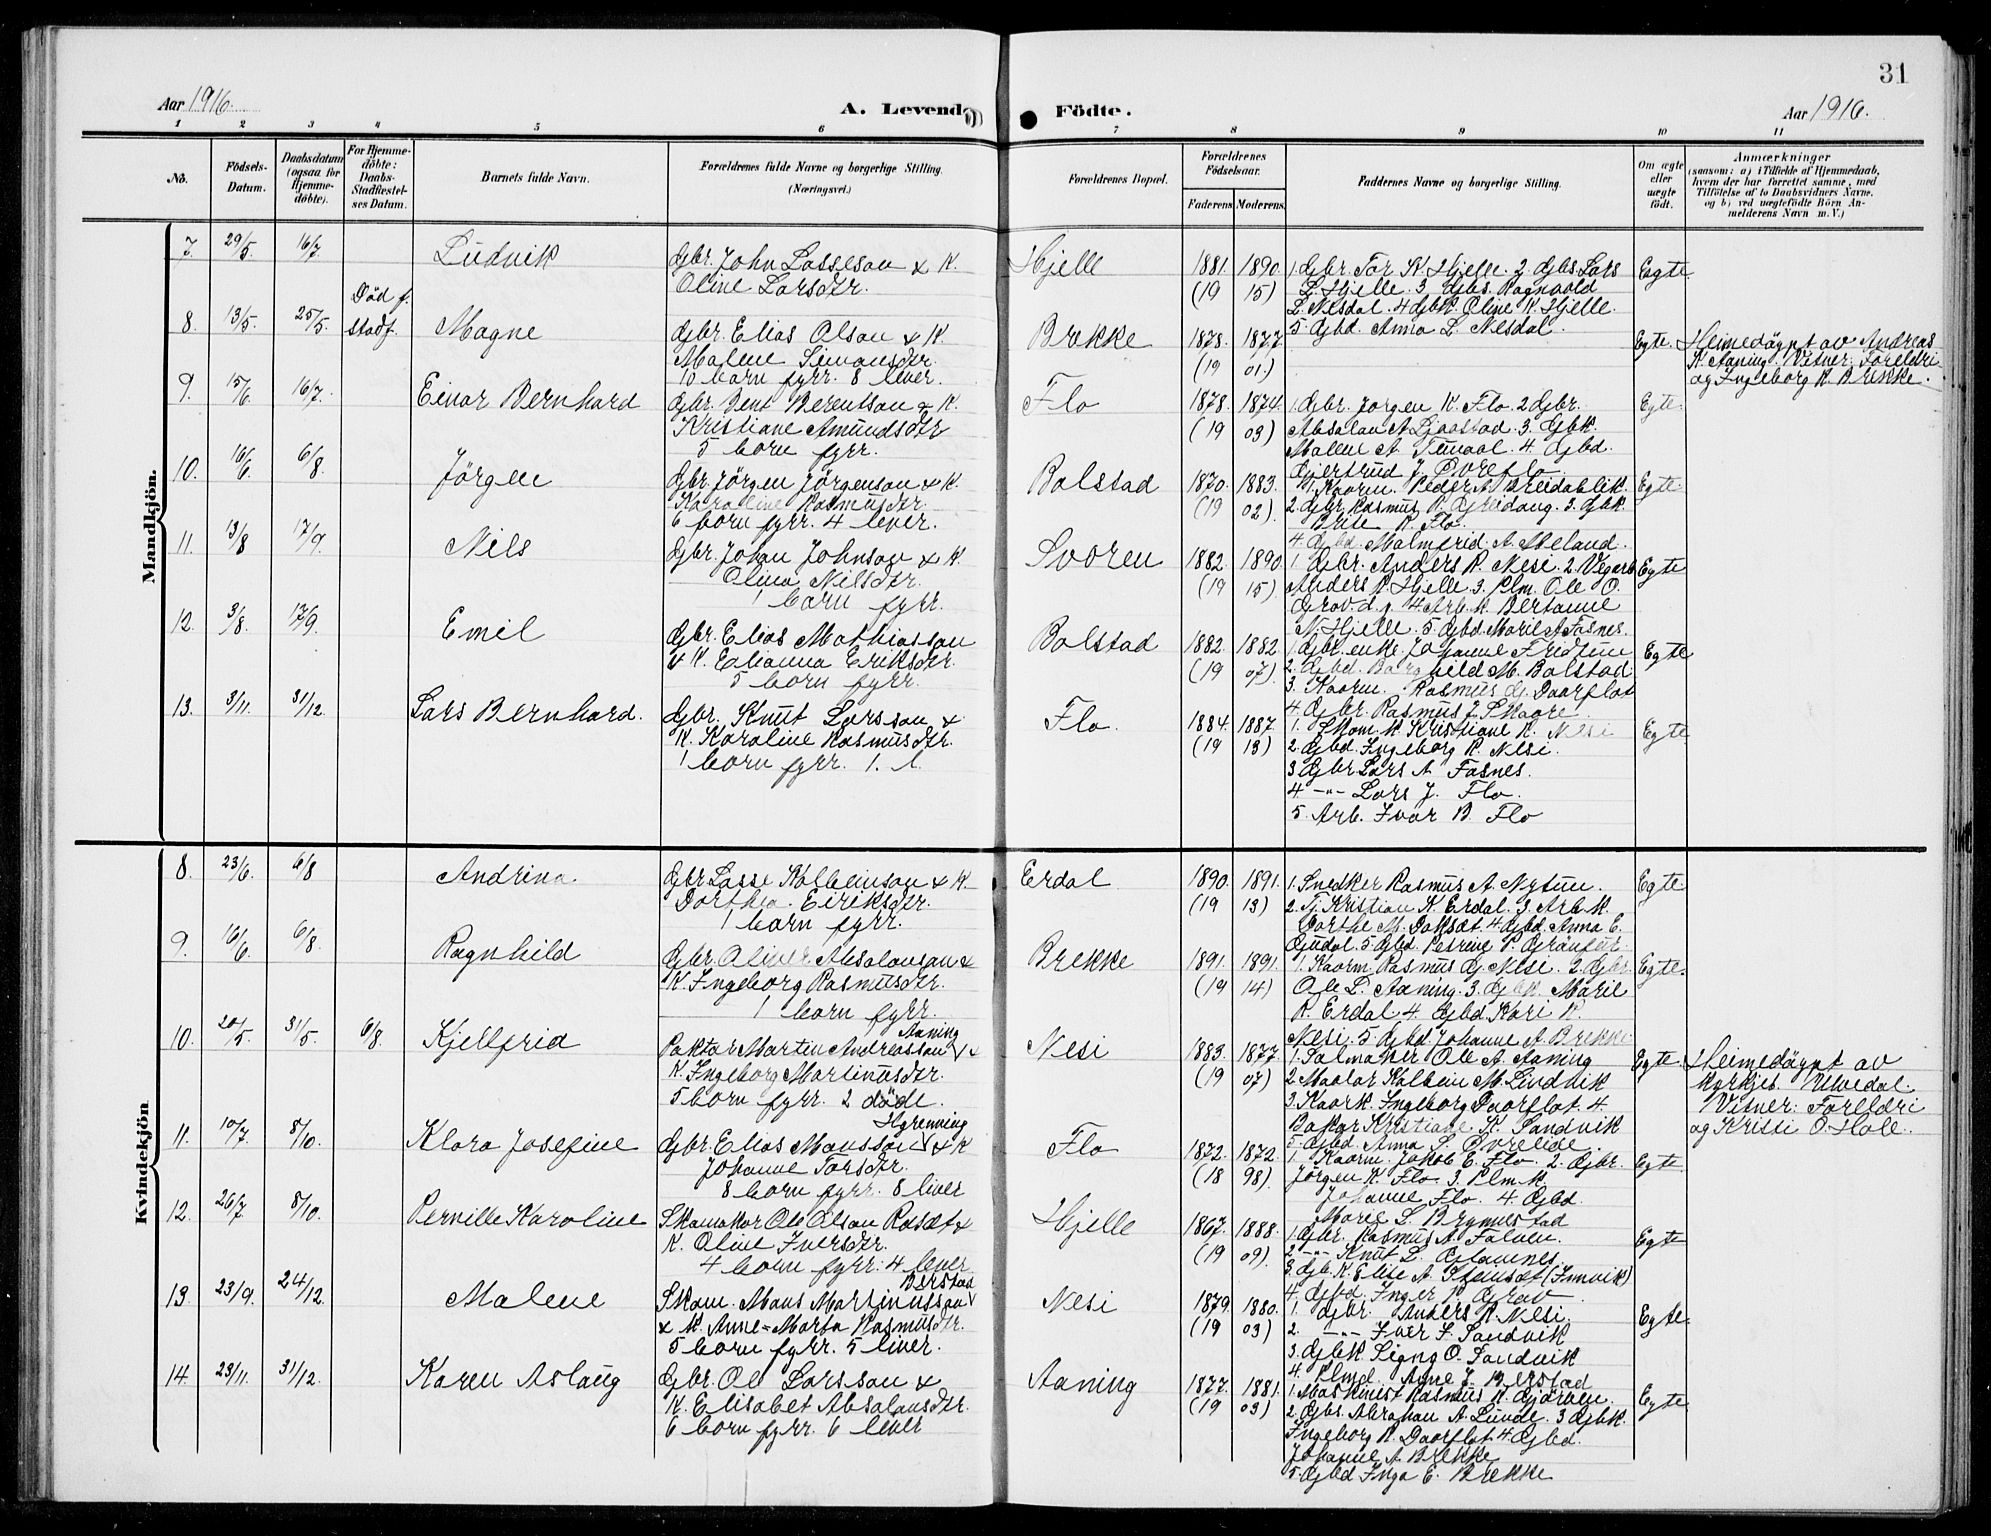 31
Aar 1916.
A. Levende Födte.
Aar 1916.
1 2 3 4 5 6 7 8 9 10 11
No.
Födsels-Datum.
Daabsdatum (ogsaa for Hjemme-döbte).
For Hjemme-döbte: Daabs-Stadfæstel-ses Datum.
Barnets fulde Navn.
Forældrenes fulde Navne og borgerlige Stilling. (Næringsvei.)
Forældrenes Bopæl.
Forældrenes Födselsaar.
Faderens. Moderens.
Faddernes Navne og borgerlige Stilling.
Om ægte eller uægte födt.
Anmærkninger
(saasom: a) i Tilfælde af Hjemmedaab, hvem der har forrettet samme, med Tilföielse af to Daabsvidners Navne, og b) ved uægtefödte Börn An-melderens Navn m. V.)
Mandkjön.
7. 29/5 16/7. Ludvik
Gbr. John Lasseson & K.
Oline Larsdtr.
Hjelle 1881. 1890. (19 15)
1. Gbr. Tor K. Hjelle. 2 Gbs. Lars
L. Hjelle. 3 Gbs. Ragnvald
L. Nesdal. 4 Gbk. Oline K. Hjelle.
5. Gbd. Anna L. Nesdal.
Egte.
8. 13/5. 25/5. Död f. stadf. Magne
Gbr. Elias Olson & K.
Malene Simonsdtr.
10 born fyrr. 8 liver.
Brekke 1878. 1877. (19 01.)
Egte.
Heimedöypt av Andreas
K. Aaning. Vitner: Foreldri
og Ingeborg R. Brekke.
9. 15/6. 16/7. Einar Bernhard
Gbr. Bent Berentson & K.
Kristiane Amundsdtr
5 born fyrr.
Flo 1878. 1874. (19 03)
1. Gbr. Jörgen K. Flo. 2 Gbr.
Absalon A. Ljaastad. 3. Gbk.
Malene A. Tunaal. 4. Gbd.
Gjertrud J. Övreflo.
Egte.
10. 16/6 6/8. Jörgen
Gbr. Jörgen Jörgenson & K.
Karoline Rasmusdtr.
6 born fyrr. 4 lever.
Bolstad 1870. 1883. (19 02).
1. Kaarm. Peder A. Breidablik.
2. Gbr Rasmus R. Greidung. 3. Gbk.
Brite R. Flo.
4. Gbd. Malmfrid A. Meland.
Egte.
11. 13/8 17/9. Nils
Gbr. Johan Johnson & K.
Olina Nilsdtr.
1 born fyrr.
Svoren 1882. 1890. (19 15)
1. Gbr. Anders R. Nesi. 2. Vegarb
Anders R. Hjelle. 3. Plm. Ole O.
Grov. d. y. 4 Arb. k. Bertanne
N. Hjelle. 5. Gbd. Marie A. Fosnes.
Egte
12. 3/8. 17/9. Emil
Gbr. Elias Mathiasson
& K. Edianna Eriksdtr.
5 born fyrr.
Bolstad 1882. 1882. (19 07).
1. Gbr. enke. Johanne Fridtun
2. Gbd. Borghild M. Bolstad.
3. Kaarm. Rasmus G. Daarflot
4. Gbr. Rasmus J. Skaare.
Egte
13. 3/11. 31/12. Lars Bernhard.
Gbr. Knut Larsson &
K. Karoline Rasmusdtr.
1 born fyrr. 1. l.
Flo. 1884. 1887. (19 13)
1. Skom. k. Kristiane K. Nesi
2. Gbd. Ingeborg R. Nesi.
3 Gbr Lars A. Fosnes.
4 -"- Lars J. Flo.
5. Arb. Ivar B. Flo
Egte
Kvindekjön
8. 23/6. 6/8 Andrina
Gbr Lasse Kolbeinson & K.
Dorthea. Eiriksdtr.
1 born fyrr.
Erdal 1890. 1891. (19 13)
1. Snedker Rasmus A. Nytun.
2. Tj. Kristian K. Erdal. 3. Arb. k.
Dorthe M. Doksæt. 4. Gbd. Anna E.
Gjudal. 5. Gbd. Petrine P.
Egte.
9. 16/6 6/8. Ragnhild
Gbr. Oliver Absalonson &
K. Ingeborg Rasmusdtr.
1 born fyrr.
Brekke 1891. 1891. (19 14)
1. Kaarm. Rasmus G. Nesi. 2. Gbr.
Ole L. Aaning. 3. Gbk. Marie
R. Erdal 4. Gbd. Kari K.
Nesi. 5. Gbd. Johanne A. Brekke
Egte.
10 20/5. 31/5. 6/8. Kjellfrid
Paktar Martin Andreasson Aaning &
K. Ingeborg Martinusdtr.
5 born fyrr. 2 döde.
Nesi 1883. 1877. (19 07)
1. Salmaker Ole A. Aaning
2. Maalar Kolbein M. Lindvik
3. Kaark. Ingeborg Daarflot. 4.
Bakar Kristiane K. Sandvik
5. Gbd. Anna S. Övrelide.
Egte.
Heimedöypt av
kyrkjes. Ulvedal.
Vitner: Foreldri
og Kristi O. Hole.
11. 10/7. 8/10. Klara Josefine
Gbr. Elias Monsson Hgrenning & K
Johanne Torsdtr.
8 born fyrr. 8 liver
Flo 1872. 1872. (18 98).
1. Kaarm. Jakob E. Flo. 2. Gbr.
Jörgen K. Flo. 3. Plm. k.
Johanne Flo. 4. Gbd.
Marie L. Brynestad
Egte
12. 26/7. 8/10. Pernille Karoline
Skomakar Ole Olson Raasæt &
K. Oline Iversdtr.
4 born fyrr. 4 lever
Hjelle 1867. 1888. (19 09).
1. Gbr. Rasmus A. Folven.
2. -"- Knut L. Glomnes.
3. Gb. k. Elise A. Steinsæt (Innvik)
4. Gbd. Inger P. Grov.
Egte
13. 23/9. 24/12. Malene
Skom. Mons Martinusson Berstad
& K. Anne-Marta Rasmusdtr.
5 born fyrr. 5 liver.
Nesi 1879. 1880. (19 03)
1. Gbr. Anders R. Nesi
2. -"- Iver J. Sandvik
3. Gbk Signy O. Sandvik
4. Plmd. Anne J. Berstad
Egte.
14. 23/11. 31/12. Karen Aslaug
Gbr. Ole Larsson &
K. Elisabet Absalonsdtr.
6 born fyrr. 6 lever
Aaning 1877. 1881. (19 03)
1. Maskinist Rasmus K. Gjörven.
2. Gbs. Abraham A. Lunde. 3 Gbk.
Ingeborg R. Daarflot. 4 Gbd.
Johanne A. Brekke
5. Gbd Inga E. Brekke
Egte